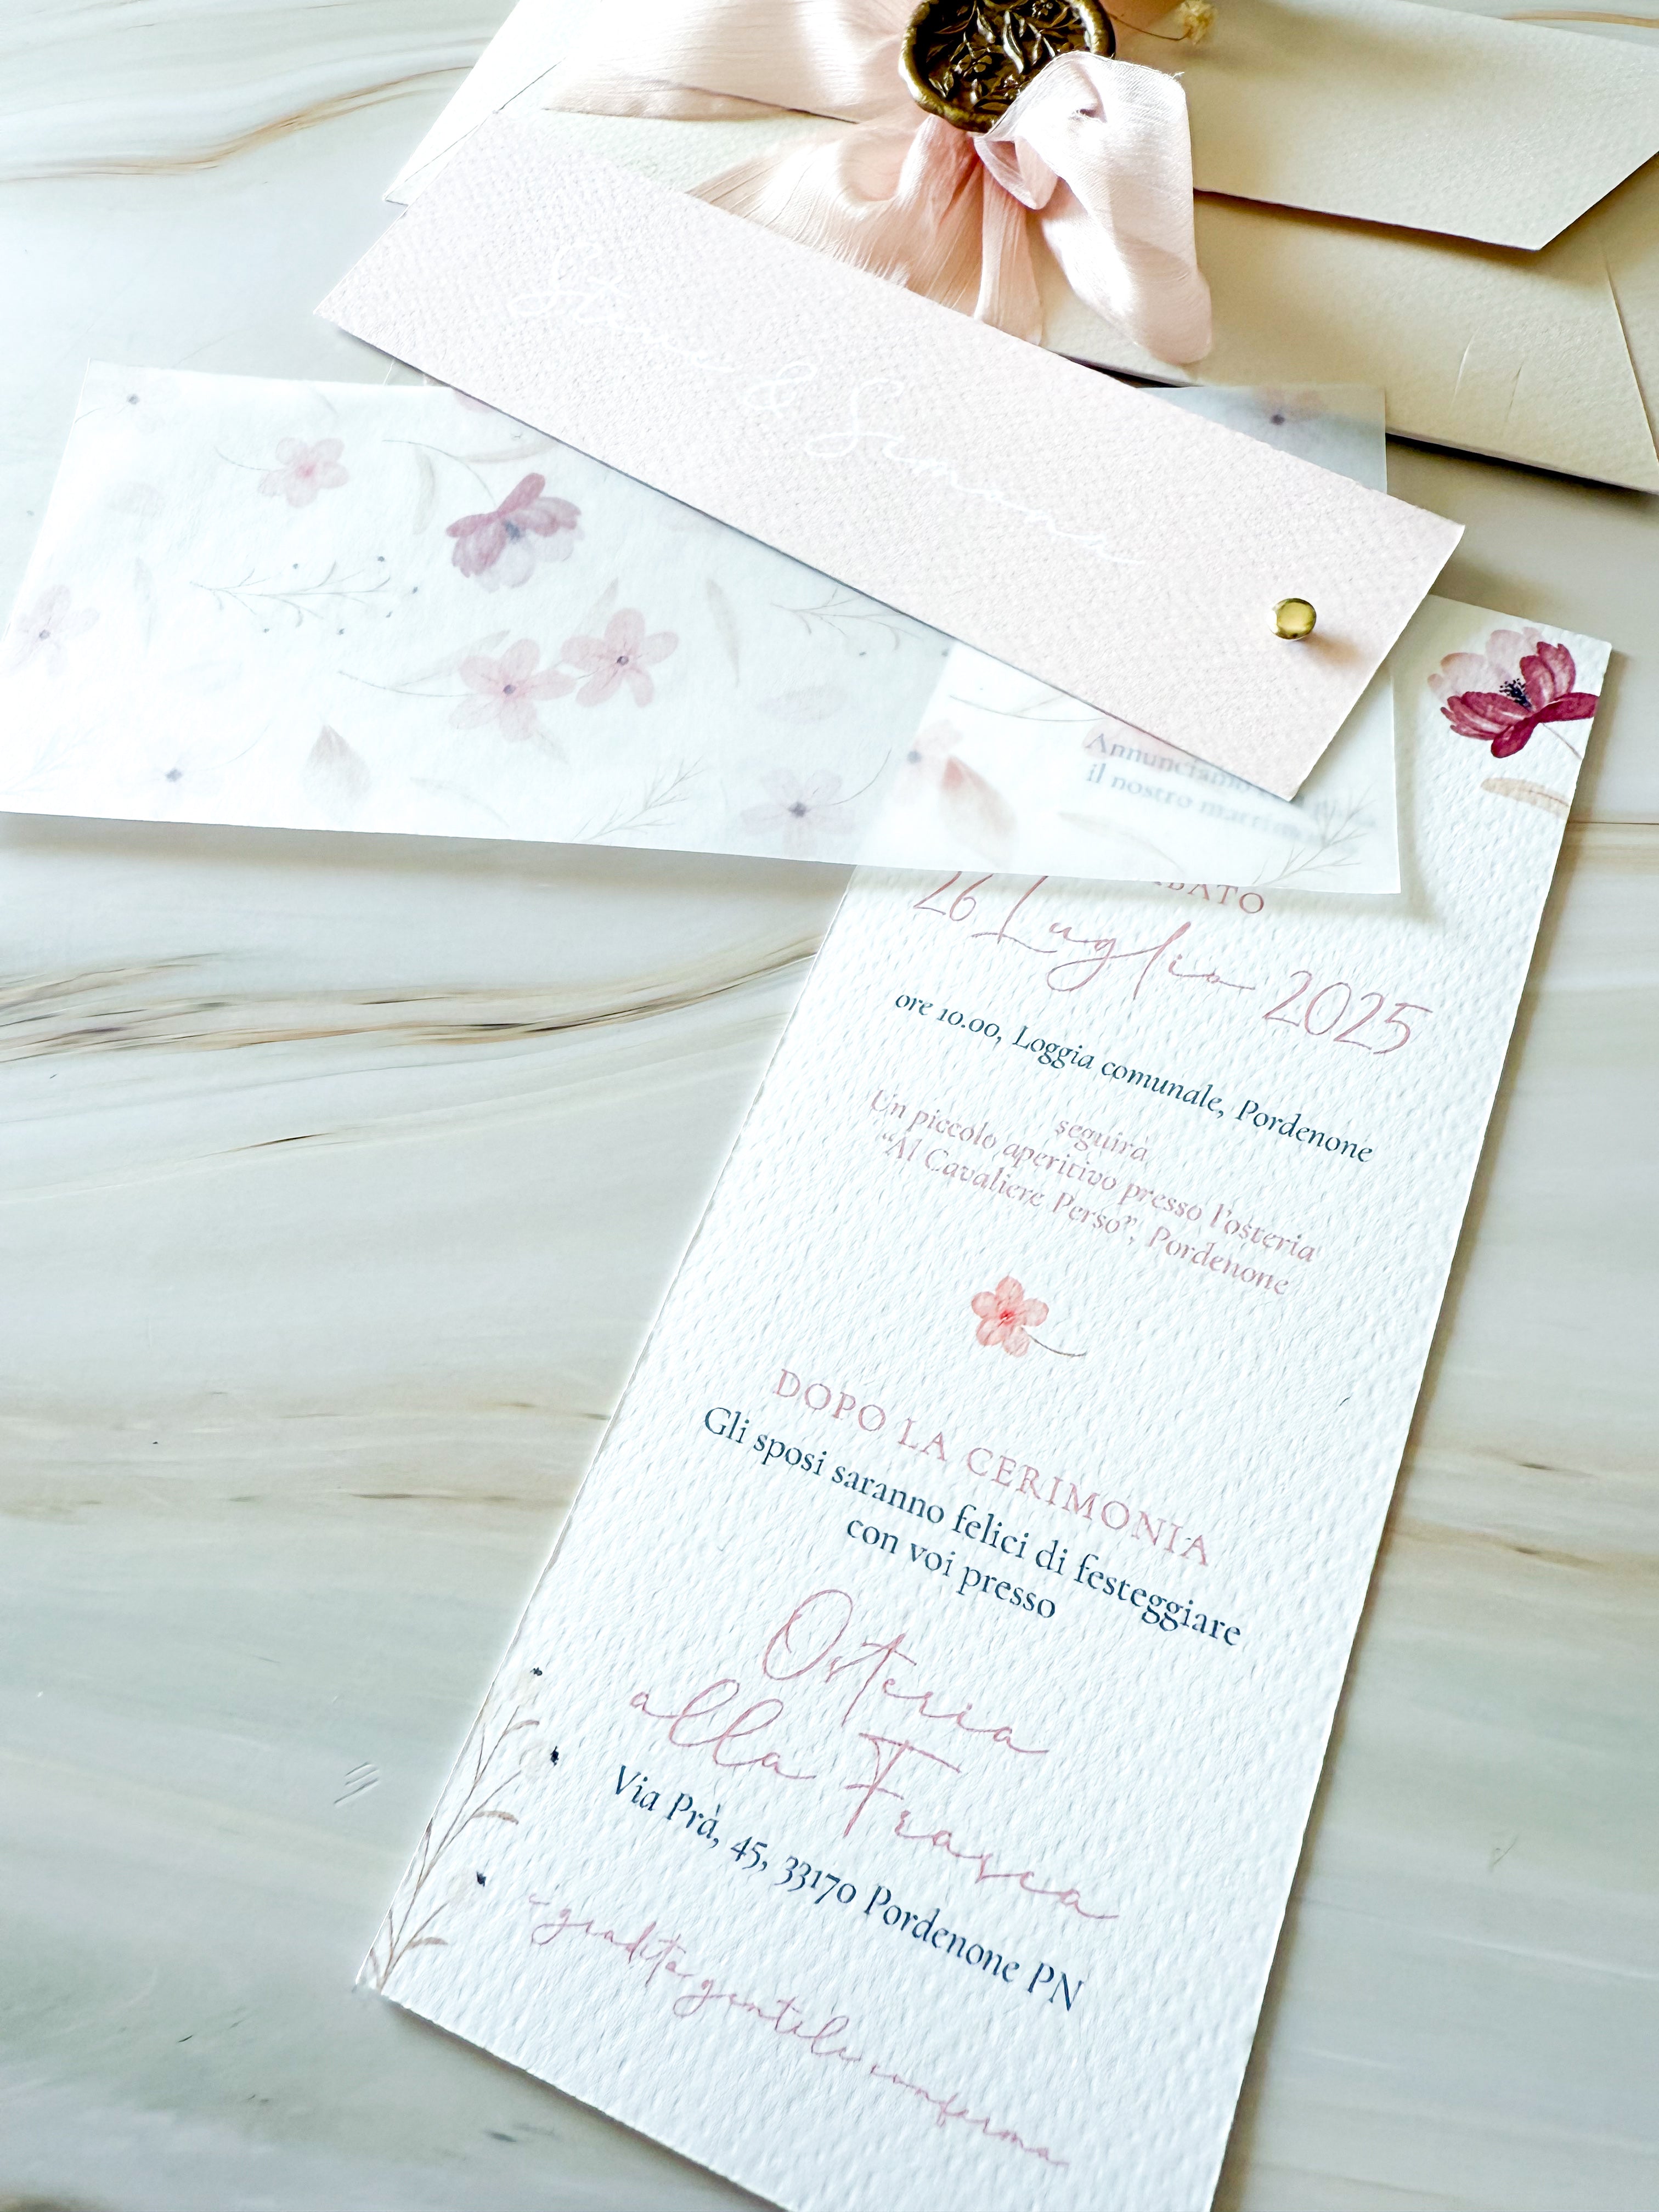 & Simona
Annunciamo
il nostro
26 Luglio 2025
ore 10.00, Loggia comunale, Pordenone
seguirà
Un piccolo aperitivo presso l'osteria
“Al Cavaliere Perso”, Pordenone
DOPO LA CERIMONIA
Gli sposi saranno felici di festeggiare
con voi presso
Osteria
alla Frasca
Via Prà, 45, 33170 Pordenone PN
è gradita gentile conferma